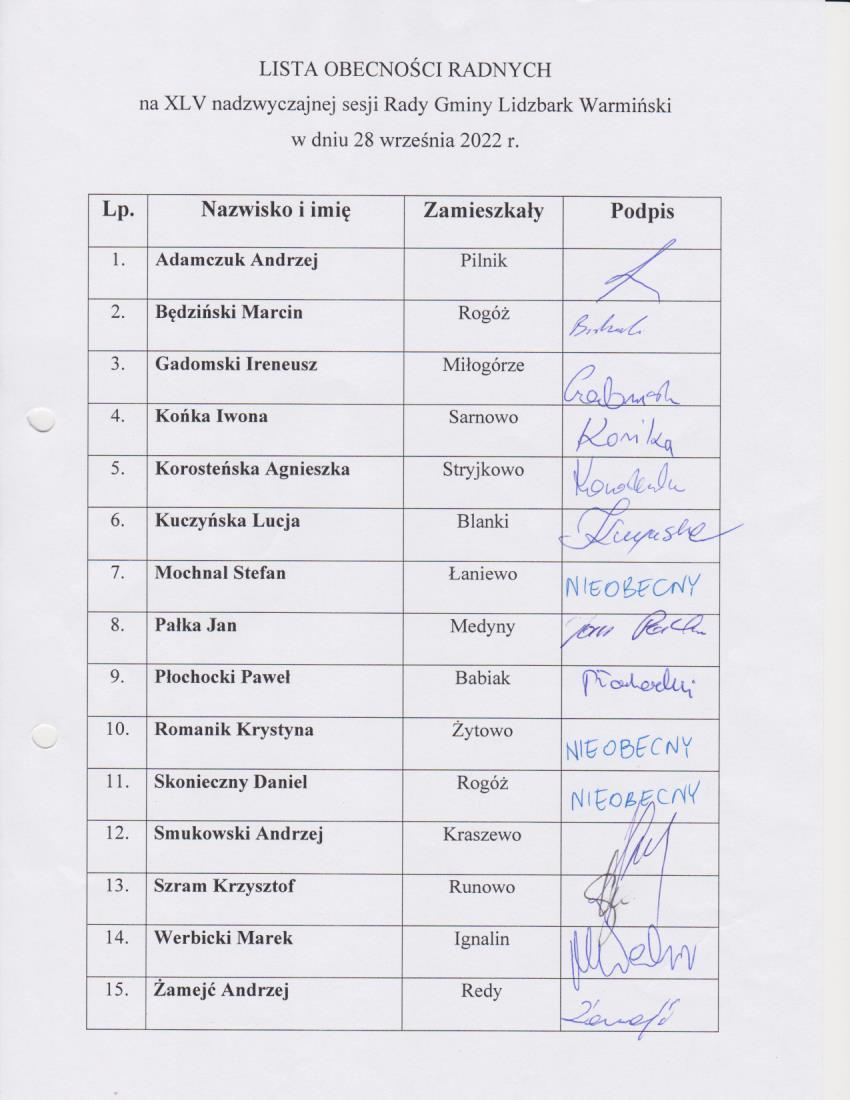 LISTA OBECNOŚCI RADNYCH
na XLV nadzwyczajnej sesji Rady Gminy Lidzbark Warmiński
w dniu 28 września 2022 r.
Lp. Nazwisko i imię Zamieszkały Podpis
1. Adamczuk Andrzej Pilnik
2. Będziński Marcin Rogóż
3. Gadomski Ireneusz Miłogórze
4. Końka Iwona Sarnowo Końka
5. Korosteńska Agnieszka Stryjkowo
6. Kuczyńska Lucja Blanki
7. Mochnal Stefan Łaniewo NIEOBECNY
8. Pałka Jan Medyny
9. Płochocki Paweł Babiak Płochocki
10. Romanik Krystyna Żytowo NIEOBECNY
11. Skonieczny Daniel Rogóż NIEOBECNY
12. Smukowski Andrzej Kraszewo
13. Szram Krzysztof Runowo
14. Werbicki Marek Ignalin
15. Żamejć Andrzej Redy Żamejć